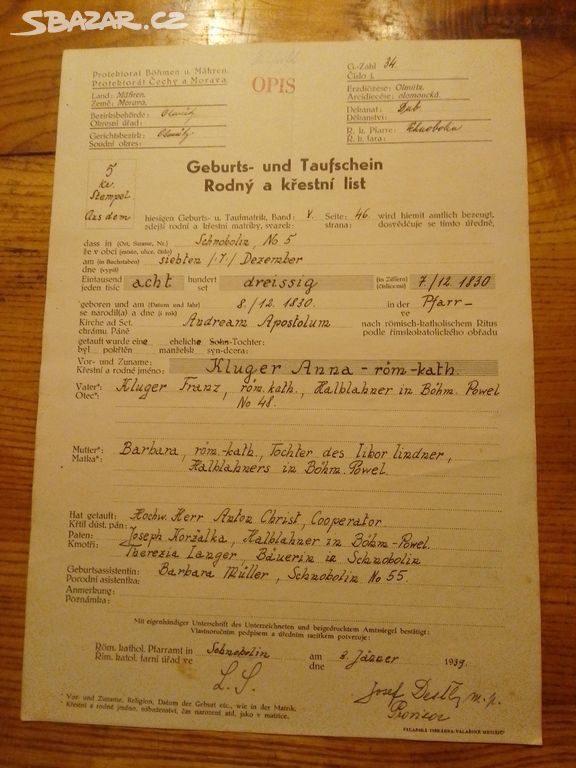 SBAZAR.CZ
Protektorat Böhmen u. Mähren.
Protektorát Čechy a Morava.
Land: Mähren.
Země: Morava.
Bezirksbehörde: Olmütz
Okresní úřad:
Gerichtsbezirk: Olmütz
Soudní okres:
OPIS
G.-Zahl 34
Číslo j.
Erzdiözese: Olmütz.
Arcidiecése: olomoucká.
Dekanat: Dub
Děkanství:
R. k. Pfarre:
Ř. k. fara:
5
Kr.
Stempel
Aus dem
Geburts- und Taufschein
Rodný a křestní list
hiesigen Geburts- u. Taufmatrik, Band: V. Seite: 46. wird hiemit amtlich bezeugt,
zdejší rodní a křestní matriky, svazek: strana: dosvědčuje se tímto úředně,
dass in (Ort, Strasse, Nr.) Schnobolin, No 5
že v obci (místo, ulice, číslo)
am (in Buchstaben) siebten /:7:/ Dezember
dne (vypiš)
Eintausend acht hundert dreissig (in Ziffern) 7./12. 1830
jeden tisíc set (číslicemi)
geboren und am (Datum und Jahr) 8./12. 1830. in der Pfarr-
se narodil(a) a dne (i rok) v
Kirche ad Sct. Andream Apostolum nach römisch-katholischem Ritus
chrámu Páně podle římskokatolického obřadu
getauft wurde eine eheliche Sohn-Tochter:
byl pokřtěn manželsk syn-dcera:
Vor- und Zuname: Kluger Anna - röm-kath.
Křestní a rodné jméno:
Vater*: Kluger Franz, röm. kath., Halblahner in Böhm. Powel
Otec*: No 48.
Mutter*: Barbara, röm.-kath., Tochter des Libor Lindner,
Matka*: Halblahners in Böhm. Powel.
Hat getauft: Hochw. Herr Anton Christ, Cooperator
Křtil důst. pán:
Paten: Joseph Koržalka, Halblahner in Böhm-Powel.
Kmotři: Therezia Langer, Bäuerin in Schnobolin
Geburtsassistentin: Barbara Müller, Schnobolin No 55.
Porodní asistentka:
Anmerkung:
Poznámka:
Mit eigenhändiger Unterschrift des Unterzeichneten und beigedrucktem Amtssiegel bestätigt:
Vlastnoručním podpisem a úředním razítkem potvrzuje:
Röm. kathol. Pfarramt in Schnobolin am 3. Jänner 1939.
Řím. katol. farní úřad ve dne
L. S.
Josef m. p.
* Vor- und Zuname, Religion, Datum der Geburt etc., wie in der Matrik.
Křestní a rodné jméno, náboženství, čas narození atd., jako v matrice.
VALAŠSKÁ TISKÁRNA-VALAŠSKÉ MEZIŘÍČÍ